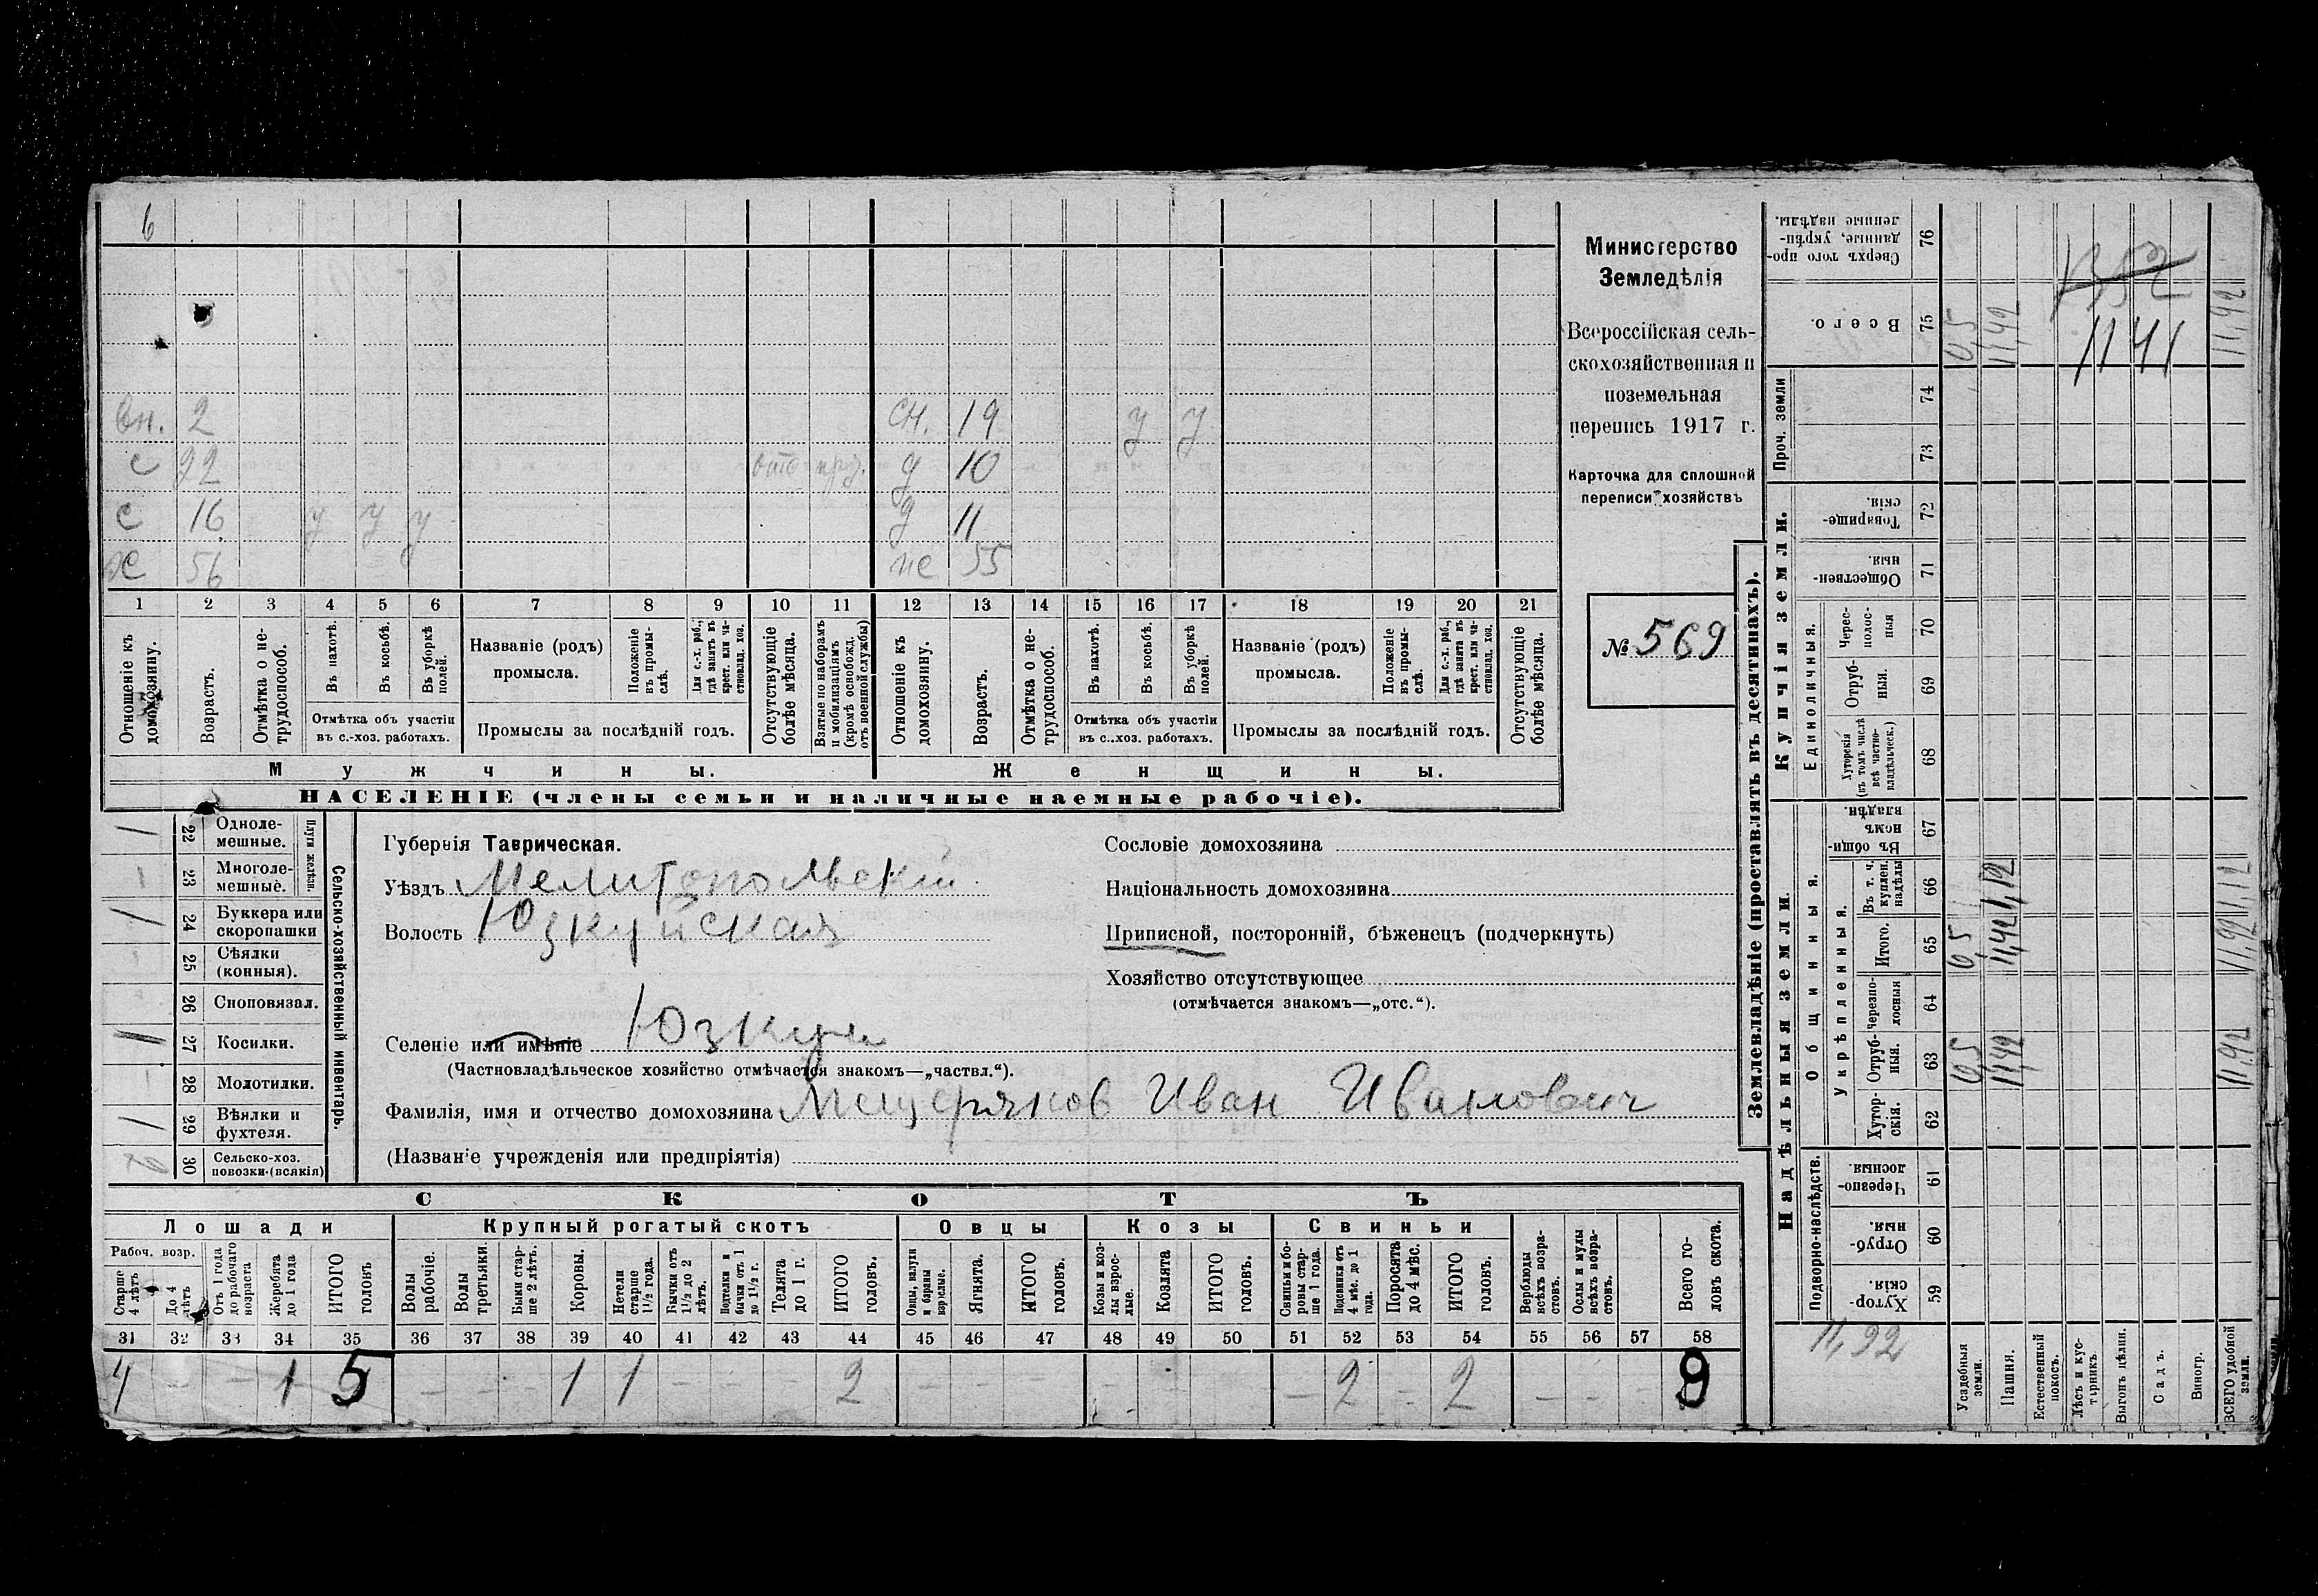 6
вн. 2 сн. 19 у у
с 22 д 10
с 16 у у у д 11
х 56 ж 55
1 2 3 4 5 6 7 8 9 10 11 12 13 14 15 16 17 18 19 20 21
Отношеніе къ домохозяину.
Возрастъ.
Отмѣтка о не-трудоспособ.
Въ пахотѣ.
Въ косьбѣ.
Въ уборкѣ полей.
Отмѣтка объ участіи
въ с.-хоз. работахъ.
Названіе (родъ)
промысла.
Положеніе въ промы-слѣ.
Для с.-х. раб., гдѣ занятъ въ крест. или ча-стновлад. хоз.
Промыслы за послѣдній годъ.
Отсутствующіе болѣе мѣсяца.
Взятые по наборамъ и мобилизаціямъ (кромѣ освобожд. отъ военной службы)
Отношеніе къ домохозяину.
Возрастъ.
Отмѣтка о не-трудоспособ.
Въ пахотѣ.
Въ косьбѣ.
Въ уборкѣ полей.
Отмѣтка объ участіи
въ с.-хоз. работахъ.
Названіе (родъ)
промысла.
Положеніе въ промы-слѣ.
Для с.-х. раб., гдѣ занята въ крест. или ча-стновлад. хоз.
Промыслы за послѣдній годъ.
Отсутствующіе болѣе мѣсяца.
Мужчины. Женщины.
НАСЕЛЕНІЕ (члены семьи и наличные наемные рабочіе).
Министерство
Земледѣлія
Всероссійская сель-
скохозяйственная и
поземельная
перепись 1917 г.
Карточка для сплошной
переписи хозяйствъ
№ 569
1 22 Одноле-мешные.
23 Многоле-мешные.
Плуги желѣзн.
1 24 Буккера или скоропашки
25 Сѣялки (конныя).
26 Сноповязал.
1 27 Косилки.
28 Молотилки.
1 29 Вѣялки и фухтеля.
30 Сельско-хоз. повозки (всякія)
Сельско-хозяйственный инвентарь.
Губернія Таврическая.
Уѣздъ Мелитопольскій
Волость Юзкуйская
Селеніе или имѣніе Юзкуи
(Частновладѣльческое хозяйство отмѣчается знакомъ—„частвл.“).
Фамилія, имя и отчество домохозяина Мещеряков Иван Иванович
(Названіе учрежденія или предпріятія)
Сословіе домохозяина
Національность домохозяина
Приписной, посторонній, бѣженецъ (подчеркнуть)
Хозяйство отсутствующее
(отмѣчается знакомъ—„отс.“).
СКОТЪ
Лошади Крупный рогатый скотъ Овцы Козы Свиньи
Рабоч. возр.
Старше 4 лѣтъ
До 4 лѣтъ
Отъ 1 года до рабочаго возраста
Жеребята до 1 года
ИТОГО головъ
Волы рабочіе.
Волы третьяки.
Быки стар-ше 2 лѣтъ.
Коровы.
Нетели старше 1 1/2 года.
Бычки отъ 1 1/2 до 2 лѣтъ.
Подтелки и бычки отъ 1 до 1 1/2 г.
Телята до 1 г.
ИТОГО головъ.
Овцы, валухи и бараны взрослые.
Ягнята.
ИТОГО головъ.
Козы и коз-лы взрос-лые.
Козлята
ИТОГО головъ.
Свиньи и бо-ровы стар-ше 1 года.
Подсвинки отъ 4 мѣс. до 1 года.
Поросята до 4 мѣс.
ИТОГО головъ.
Верблюды всѣхъ возра-стовъ.
Ослы и мулы всѣхъ возра-стовъ.
Всего го-ловъ скота.
31 32 33 34 35 36 37 38 39 40 41 42 43 44 45 46 47 48 49 50 51 52 53 54 55 56 57 58
4 – – 1 5 – – – 1 1 – – – 2 – – – – – – – 2 – 2 – – – 9
Землевладѣніе (проставлять въ десятинахъ).
Надѣльныя земли. Купчія земли. Проч. земли
Подворно-наслѣдств.
Общинныя.
Укрѣпленныя.
Единоличныя.
Хутор-скія. 59
Отруб-ныя. 60
Черезпо-лосныя 61
Хутор-скія. 62
Отруб-ныя. 63
Черезпо-лосныя 64
Итого. 65
Въ т. ч. куплен. надѣлы 66
Въ общи-номъ владѣн. 67
Хуторскія (въ томъ числѣ всѣ частно-владѣльческ.) 68
Отруб-ныя. 69
Черес-полос-ныя 70
Обществен-ныя 71
Товарище-скія. 72
73
74
Всего. 75
Сверхъ того про-данные, укрѣп-ленные надѣлы. 76
11,92
Усадебныя земли. 0,5 0,5 0,5
Пашня. 11,42 11,42 1,12 11,42
Естественный покосъ.
Лѣсъ и кус-тарникъ.
Выгонъ цѣлин.
Садъ.
Виногр.
ВСЕГО удобной земли. 11,92 11,92 1,12 11,92
1141